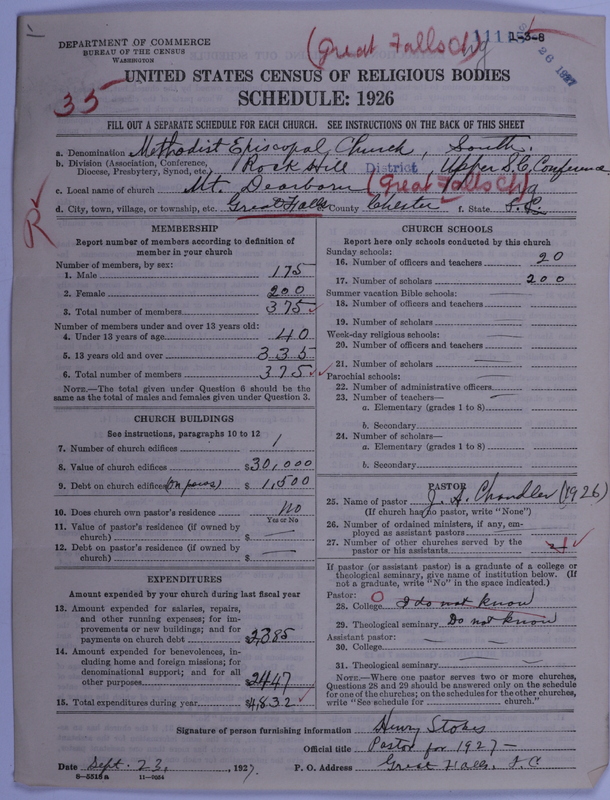 (Great Falls Ch)
1111 5-3-8
26 1927
DEPARTMENT OF COMMERCE
BUREAU OF THE CENSUS
WASHINGTON
UNITED STATES CENSUS OF RELIGIOUS BODIES
35
SCHEDULE: 1926
FILL OUT A SEPARATE SCHEDULE FOR EACH CHURCH. SEE INSTRUCTIONS ON THE BACK OF THIS SHEET
a. Denomination Methodist Episcopal Church, South.
b. Division (Association, Conference, Diocese, Presbytery, Synod, etc.) Rock Hill District, Upper S.C. Conference
c. Local name of church Mt. Dearborn (Great Falls Ch)
d. City, town, village, or township, etc. Great Falls County Chester f. State S.C.
R
MEMBERSHIP
Report number of members according to definition of
member in your church
Number of members, by sex:
1. Male 175
2. Female 200
3. Total number of members 375
Number of members under and over 13 years old:
4. Under 13 years of age 40
5. 13 years old and over 335
6. Total number of members 375
NOTE.—The total given under Question 6 should be
same as the total of males and females given under Question 3.
CHURCH BUILDINGS
See instructions, paragraphs 10 to 12
7. Number of church edifices 1
8. Value of church edifices $30,000
9. Debt on church edifices (on pews) $1,500
10. Does church own pastor's residence? No
Yes or No
11. Value of pastor's residence (if owned by
church) $
12. Debt on pastor's residence (if owned by
church) $
EXPENDITURES
Amount expended by your church during last fiscal year
13. Amount expended for salaries, repairs,
and other running expenses; for im-
provements or new buildings; and for
payments on church debt $2385
14. Amount expended for benevolences, in-
cluding home and foreign missions; for
denominational support; and for all
other purposes $2447
15. Total expenditures during year $4832
CHURCH SCHOOLS
Report here only schools conducted by this church
Sunday schools:
16. Number of officers and teachers 20
17. Number of scholars 200
Summer vacation Bible schools:
18. Number of officers and teachers
19. Number of scholars
Week-day religious schools:
20. Number of officers and teachers
21. Number of scholars
Parochial schools:
22. Number of administrative officers
23. Number of teachers—
a. Elementary (grades 1 to 8)
b. Secondary
24. Number of scholars—
a. Elementary (grades 1 to 8)
b. Secondary
PASTOR
25. Name of pastor J. A. Chandler (1926)
(If church has no pastor, write "None")
26. Number of ordained ministers, if any, em-
ployed as assistant pastors
27. Number of other churches served by the
pastor or his assistants
If pastor (or assistant pastor) is a graduate of a college or
theological seminary, give name of institution below. (If
not a graduate, write "No" in the space indicated.)
Pastor:
28. College I do not know
29. Theological seminary Do not know
Assistant pastor:
30. College
31. Theological seminary
NOTE.—Where one pastor serves two or more churches,
Questions 28 and 29 should be answered only on the schedule
for one of the churches; on the schedules for the other churches,
write "See schedule for church."
Signature of person furnishing information Henry Stokes
Official title Pastor for 1927—
Date Sept. 23, 1927. P. O. Address Great Falls, S.C.
8—5518a 11—9054